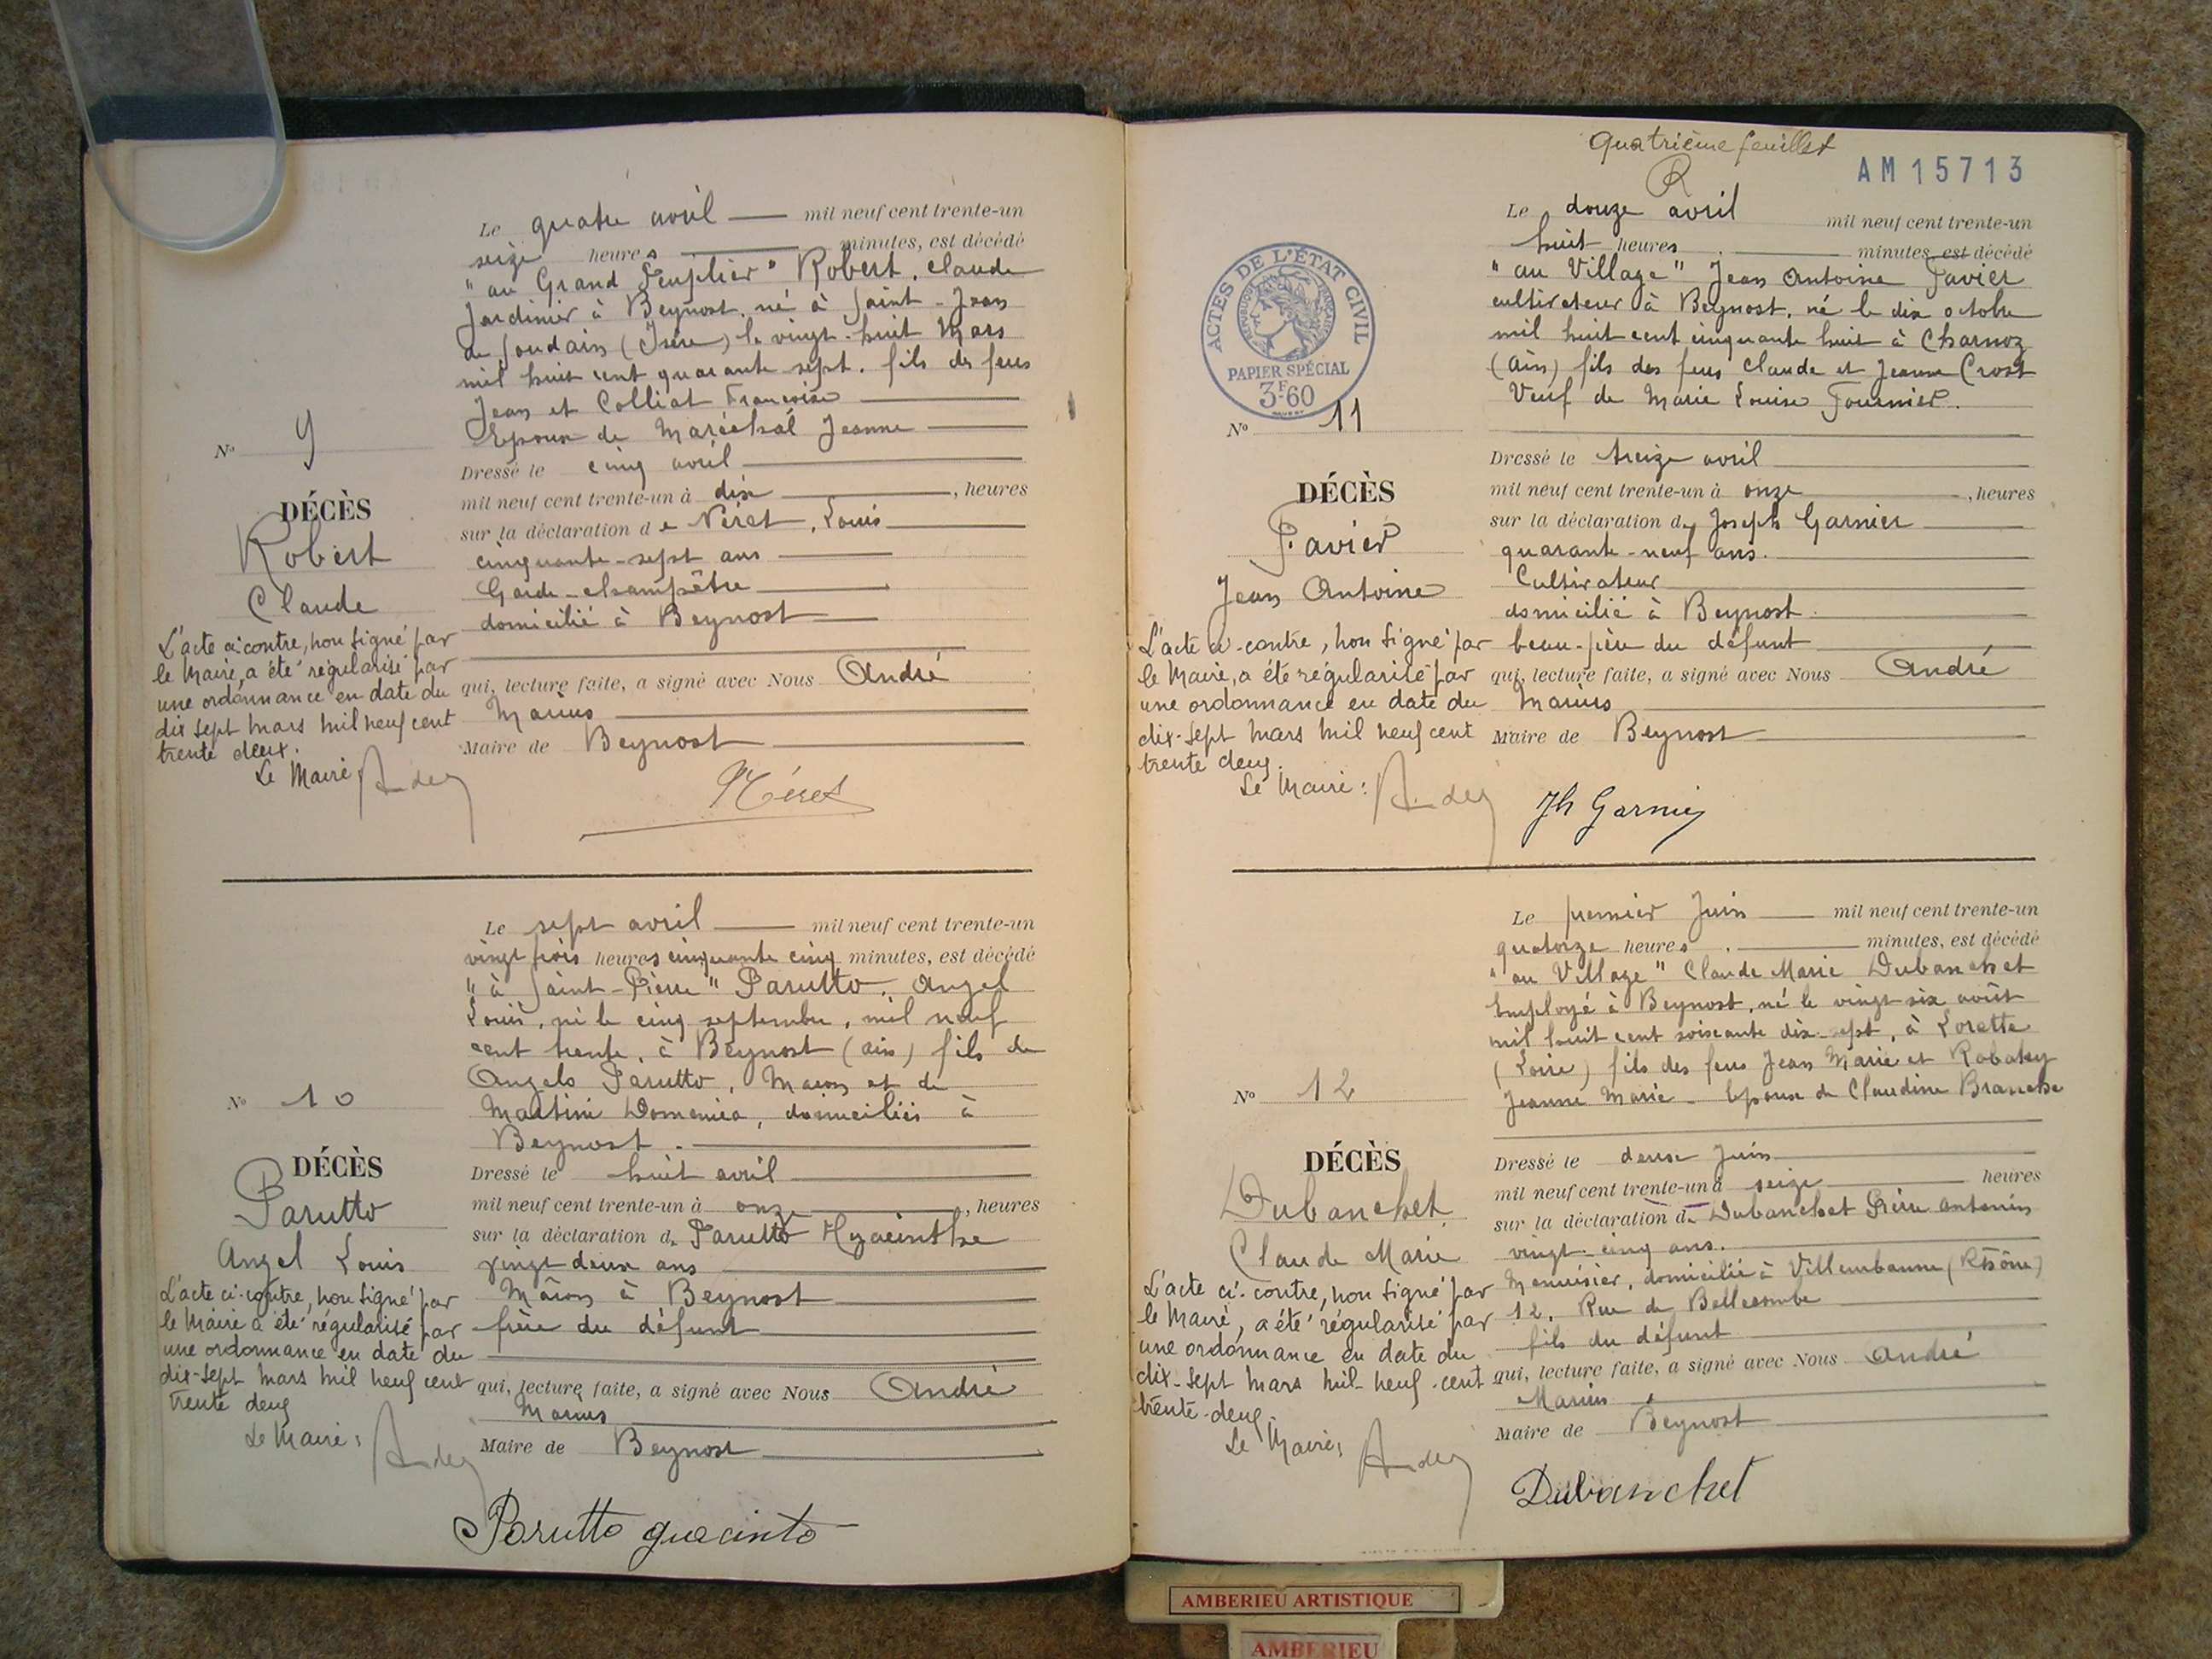 Le quatre avril mil neuf cent trente-un
seize heures minutes, est décédé
"au Grand Peuplier" Robert, Claude
Jardinier à Beynost, né à Saint-Jean
de Soudain (Isère) le vingt-huit Mars
mil huit cent quarante sept. fils des feus
Jean et Colliat Françoise
Epoux de Maréchal Jeanne
Nº 9
DÉCÈS
Robert
Claude
Dressé le cinq avril
mil neuf cent trente-un à dix , heures
sur la déclaration de Néret, Louis
cinquante-sept ans
Garde-champêtre
domicilié à Beynost
qui, lecture faite, a signé avec Nous André
Marius
Maire de Beynost
L'acte ci-contre, non signé par
le Maire, a été régularisé par
une ordonnance en date du
dix sept Mars mil neuf cent
trente deux.
Le Maire
Néret
Le sept avril mil neuf cent trente-un
vingt trois heures cinquante cinq minutes, est décédé
"à Saint-Pierre" Parutto, Angel
Louis, né le cinq septembre, mil neuf
cent trente, à Beynost (Ain) fils de
Angelo Parutto, Maçon et de
Martini Domenica, domiciliés à
Beynost.
Nº 10
DÉCÈS
Parutto
Angel Louis
Dressé le huit avril
mil neuf cent trente-un à onze , heures
sur la déclaration de Parutto Hyacinthe
vingt deux ans
Maçon à Beynost
frère du défunt
qui, lecture faite, a signé avec Nous André
Marius
Maire de Beynost
L'acte ci-contre, non signé par
le Maire a été régularisé par
une ordonnance en date du
dix-sept Mars mil neuf cent
trente deux
Le Maire:
Parutto giacinto
Quatrième feuillet
AM15713
R
ACTES DE L'ÉTAT CIVIL
RÉPUBLIQUE FRANÇAISE
PAPIER SPÉCIAL
3F60
Le douze avril mil neuf cent trente-un
huit heures minutes est décédé
"au Village" Jean Antoine Favier
cultivateur à Beynost, né le dix octobre
mil huit cent cinquante huit à Charnoz
(Ain) fils des feus Claude et Jeanne Crost
Veuf de Marie Louise Fournier.
Nº 11
DÉCÈS
Favier
Jean Antoine
Dressé le treize avril
mil neuf cent trente-un à onze , heures
sur la déclaration de Joseph Garnier
quarante-neuf ans.
Cultivateur
domicilié à Beynost.
beau-frère du défunt
qui, lecture faite, a signé avec Nous André
Marius
Maire de Beynost
L'acte ci-contre, non signé par
le Maire, a été régularisé par
une ordonnance en date du
dix-sept Mars mil neuf cent
trente deux.
Le Maire:
Jh Garnier
Le premier Juin mil neuf cent trente-un
quatorze heures minutes, est décédé
"au Village" Claude Marie Dubanchet
Employé à Beynost, né le vingt six août
mil huit cent soixante dix-sept, à Lorette
(Loire) fils des feus Jean Marie et
Jeanne Marie - Epoux de Claudine Branche
Nº 12
DÉCÈS
Dubanchet
Claude Marie
Dressé le deux Juin
mil neuf cent trente-un à seize heures
sur la déclaration de Dubanchet Pierre Antonin
vingt-cinq ans.
Menuisier, domicilié à Villeurbanne (Rhône)
12, Rue de Bellecombe
fils du défunt
qui, lecture faite, a signé avec Nous André
Marius
Maire de Beynost
L'acte ci-contre, non signé par
le Maire, a été régularisé par
une ordonnance en date du
dix-sept Mars mil-neuf-cent
trente-deux.
Le Maire,
Dubanchet
AMBERIEU ARTISTIQUE
AMBERIEU